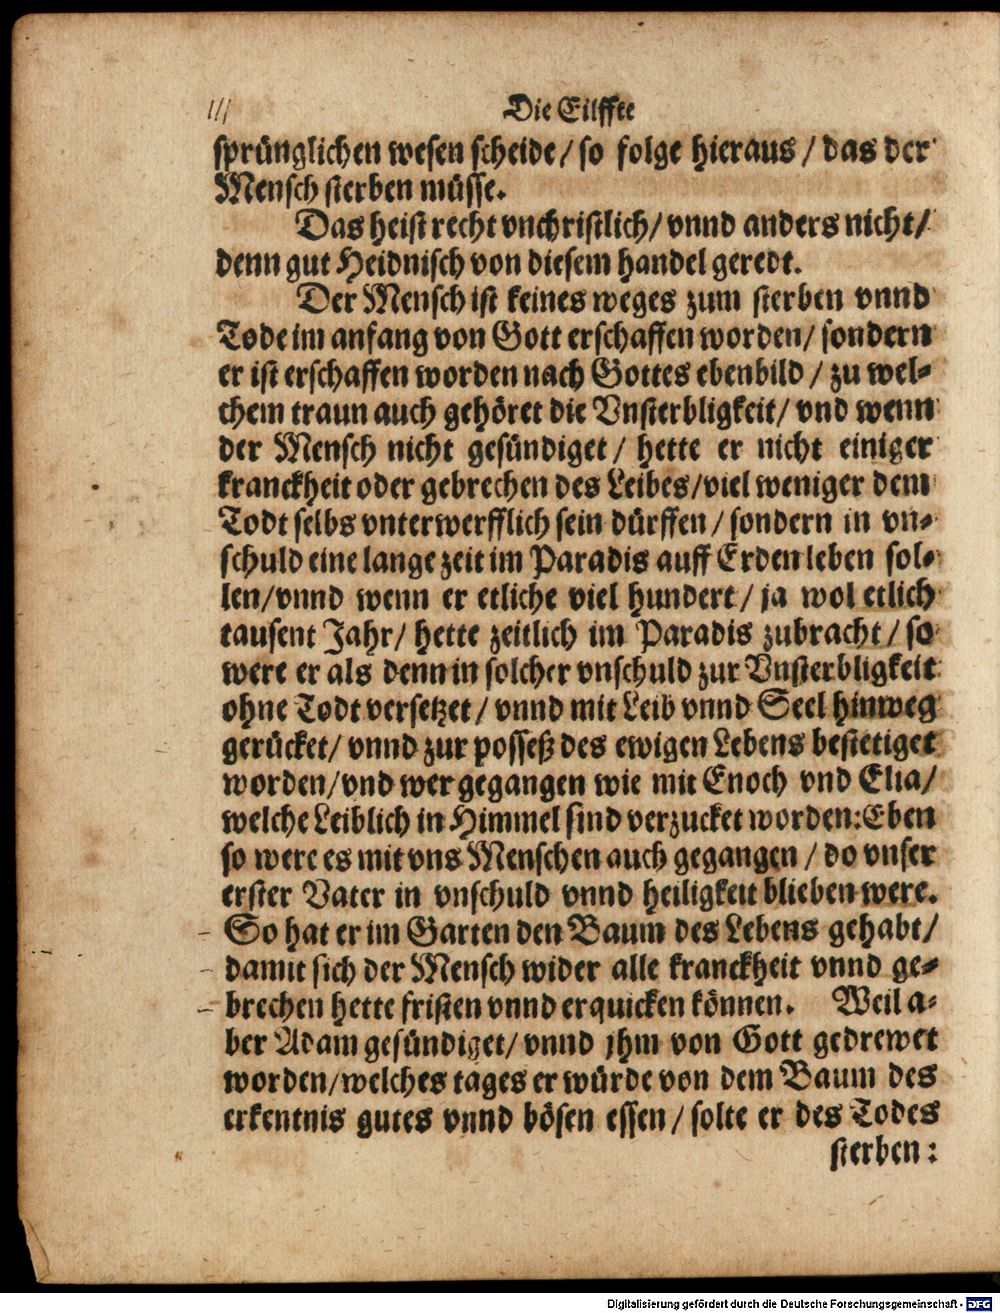 Die Eilffte
sprünglichen wesen scheide/ so folge hieraus/ das der
Mensch sterben müsse.
Das heist recht vnchristlich/ vnnd anders nicht/
denn gut Heidnisch von diesem handel geredt.
Der Mensch ist keines weges zum sterben vnnd
Tode im anfang von Gott erschaffen worden/ sondern
er ist erschaffen worden nach Gottes ebenbild/ zu wel-
chem traun auch gehöret die Vnsterbligkeit/ vnd wenn
der Mensch nicht gesündiget/ hette er nicht einiger
kranckheit oder gebrechen des Leibes/ viel weniger dem
Todt selbs vnterwerfflich sein dürffen/ sondern in vn-
schuld eine lange zeit im Paradis auff Erden leben sol-
len/ vnnd wenn er etliche viel hundert/ ja wol etlich
tausent Jahr/ hette zeitlich im Paradis zubracht/ so
were er als denn in solcher vnschuld zur Vnsterbligkeit
ohne Todt versetzet/ vnnd mit Leib vnnd Seel hinweg
gerücket/ vnnd zur posseß des ewigen Lebens bestetiget
worden/ vnd wer gegangen wie mit Enoch vnd Elia/
welche Leiblich in Himmel sind verzucket worden: Eben
so were es mit vns Menschen auch gegangen/ do vnser
erster Vater in vnschuld vnnd heiligkeit blieben were.
So hat er im Garten den Baum des Lebens gehabt/
damit sich der Mensch wider alle kranckheit vnnd ge-
brechen hette fristen vnnd erquicken können. Weil a-
ber Adam gesündiget/ vnnd jhm von Gott gedrewet
worden/ welches tages er würde von dem Baum des
erkentnis gutes vnnd bösen essen/ solte er des Todes
sterben:
Digitalisierung gefördert durch die Deutsche Forschungsgemeinschaft - DFG